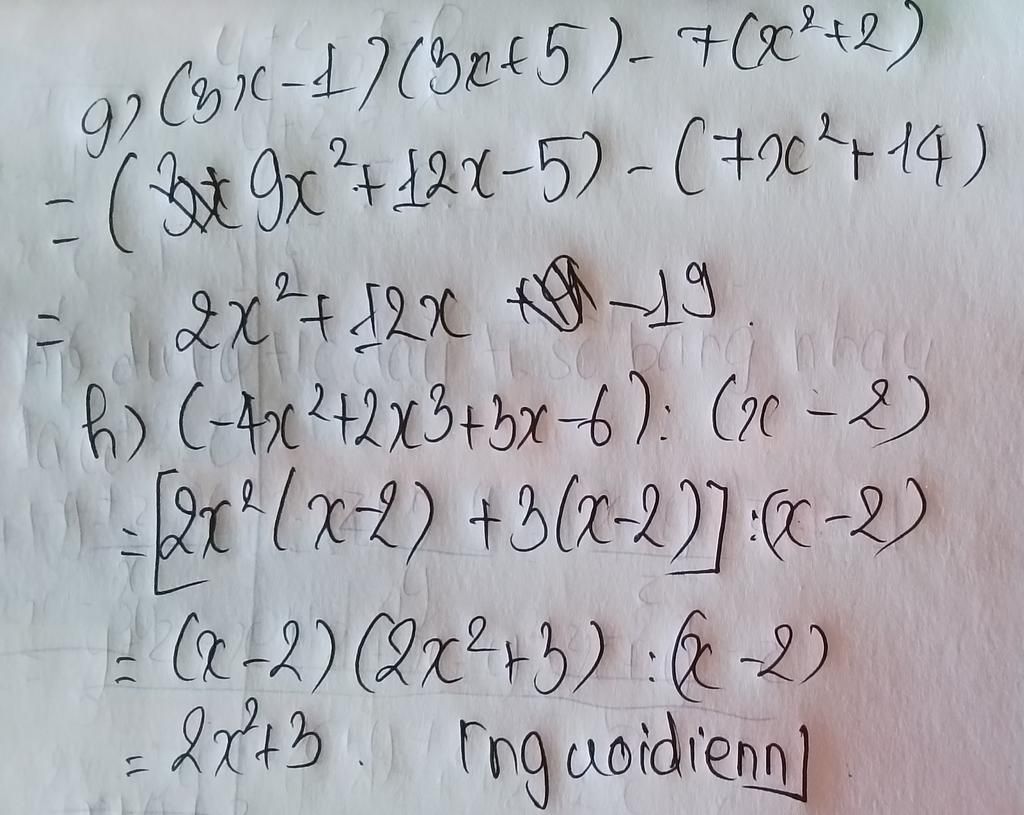 g) (3x-1)(3x+5)- 7(x²+2)
= (9x²+12x-5)-(7x²+14)
= 2x²+12x -19.
h) (-4x²+2x3+3x-6): (x-2)
=[2x²(x-2) +3(x-2)]:(x-2)
= (x-2)(2x²+3) :(x-2)
= 2x²+3. [nguoidienn]